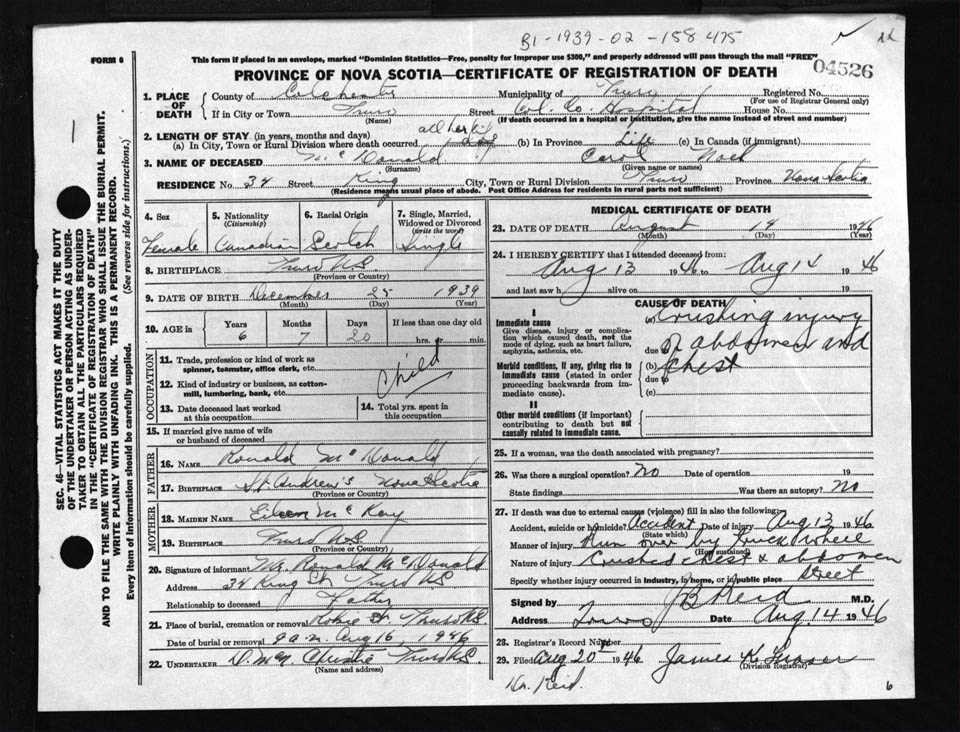 B1-1939-02-158475
FORM 6
This form if placed in an envelope, marked "Dominion Statistics—Free, penalty for improper use $300," and properly addressed will pass through the mail "FREE"
04526
PROVINCE OF NOVA SCOTIA—CERTIFICATE OF REGISTRATION OF DEATH
1. PLACE OF DEATH
County of Colchester Municipality of Truro Registered No.
(For use of Registrar General only)
If in City or Town Truro Street Col. Co. Hospital House No.
(Name) (If death occurred in a hospital or institution, give the name instead of street and number)
2. LENGTH OF STAY (in years, months and days)
(a) In City, Town or Rural Division where death occurred all her life (b) In Province Life (c) In Canada (if immigrant)
3. NAME OF DECEASED McDonald Carol Noel
(Surname) (Given name or names)
RESIDENCE No. 34 Street King City, Town or Rural Division Truro Province Nova Scotia
(Residence means usual place of abode. Post Office Address for residents in rural parts not sufficient)
4. Sex
Female
5. Nationality (Citizenship)
Canadian
6. Racial Origin
Scotch
7. Single, Married, Widowed or Divorced (write the word)
Single
8. BIRTHPLACE Truro N.S.
(Province or Country)
9. DATE OF BIRTH December 25 1939
(Month) (Day) (Year)
10. AGE in Years Months Days If less than one day old
6 7 20 hrs. or min.
OCCUPATION
11. Trade, profession or kind of work as spinner, teamster, office clerk, etc.
Child
12. Kind of industry or business, as cotton-mill, lumbering, bank, etc.
13. Date deceased last worked at this occupation
14. Total yrs. spent in this occupation
15. If married give name of wife or husband of deceased
FATHER
16. NAME Ronald McDonald
17. BIRTHPLACE St. Andrew's Nova Scotia
(Province or Country)
MOTHER
18. MAIDEN NAME Eileen McKay
19. BIRTHPLACE Truro N.S.
(Province or Country)
20. Signature of informant Mr. Ronald McDonald
Address 34 King St. Truro N.S.
Relationship to deceased Father
21. Place of burial, cremation or removal Robie St. Truro N.S.
Date of burial or removal 9 a.m. Aug 16, 1946
22. UNDERTAKER D. McN. Christie Truro N.S.
(Name and address)
MEDICAL CERTIFICATE OF DEATH
23. DATE OF DEATH August 14 1946
(Month) (Day) (Year)
24. I HEREBY CERTIFY that I attended deceased from:
Aug 13 1946 to Aug 14 1946
and last saw h alive on 19
CAUSE OF DEATH
I
Immediate cause
Give disease, injury or complication which caused death, not the mode of dying, such as heart failure, asphyxia, asthenia, etc.
(a) Crushing injury
due to abdomen and
Morbid conditions, if any, giving rise to immediate cause (stated in order proceeding backwards from immediate cause).
(b) chest
due to
(c)
II
Other morbid conditions (if important) contributing to death but not causally related to immediate cause.
25. If a woman, was the death associated with pregnancy?
26. Was there a surgical operation? No Date of operation 19
State findings Was there an autopsy? No
27. If death was due to external causes (violence) fill in also the following:
Accident, suicide or homicide? Accident Date of injury Aug 13 1946
(State which)
Manner of injury Run over by truck wheel
(How sustained)
Nature of injury Crushed chest & abdomen
Specify whether injury occurred in industry, in home, or in public place Street
Signed by J B Reid M.D.
Address Truro Date Aug. 14 1946
28. Registrar's Record Number
29. Filed Aug 20 1946 James K. Fraser
(Division Registrar)
Dr. Reid.
6
SEC. 46—VITAL STATISTICS ACT MAKES IT THE DUTY
OF THE UNDERTAKER OR PERSON ACTING AS UNDERTAKER
TO OBTAIN ALL THE PARTICULARS REQUIRED
IN THE "CERTIFICATE OF REGISTRATION OF DEATH"
AND TO FILE THE SAME WITH THE DIVISION REGISTRAR WHO SHALL ISSUE THE BURIAL PERMIT.
WRITE PLAINLY WITH UNFADING INK. THIS IS A PERMANENT RECORD.
Every item of information should be carefully supplied. (See reverse side for instructions.)